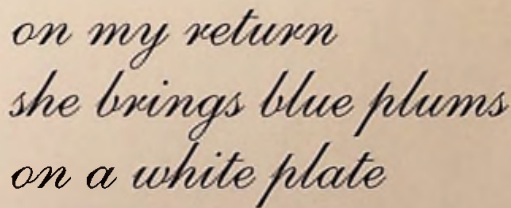 on my return
she brings blue plums
on a white plate